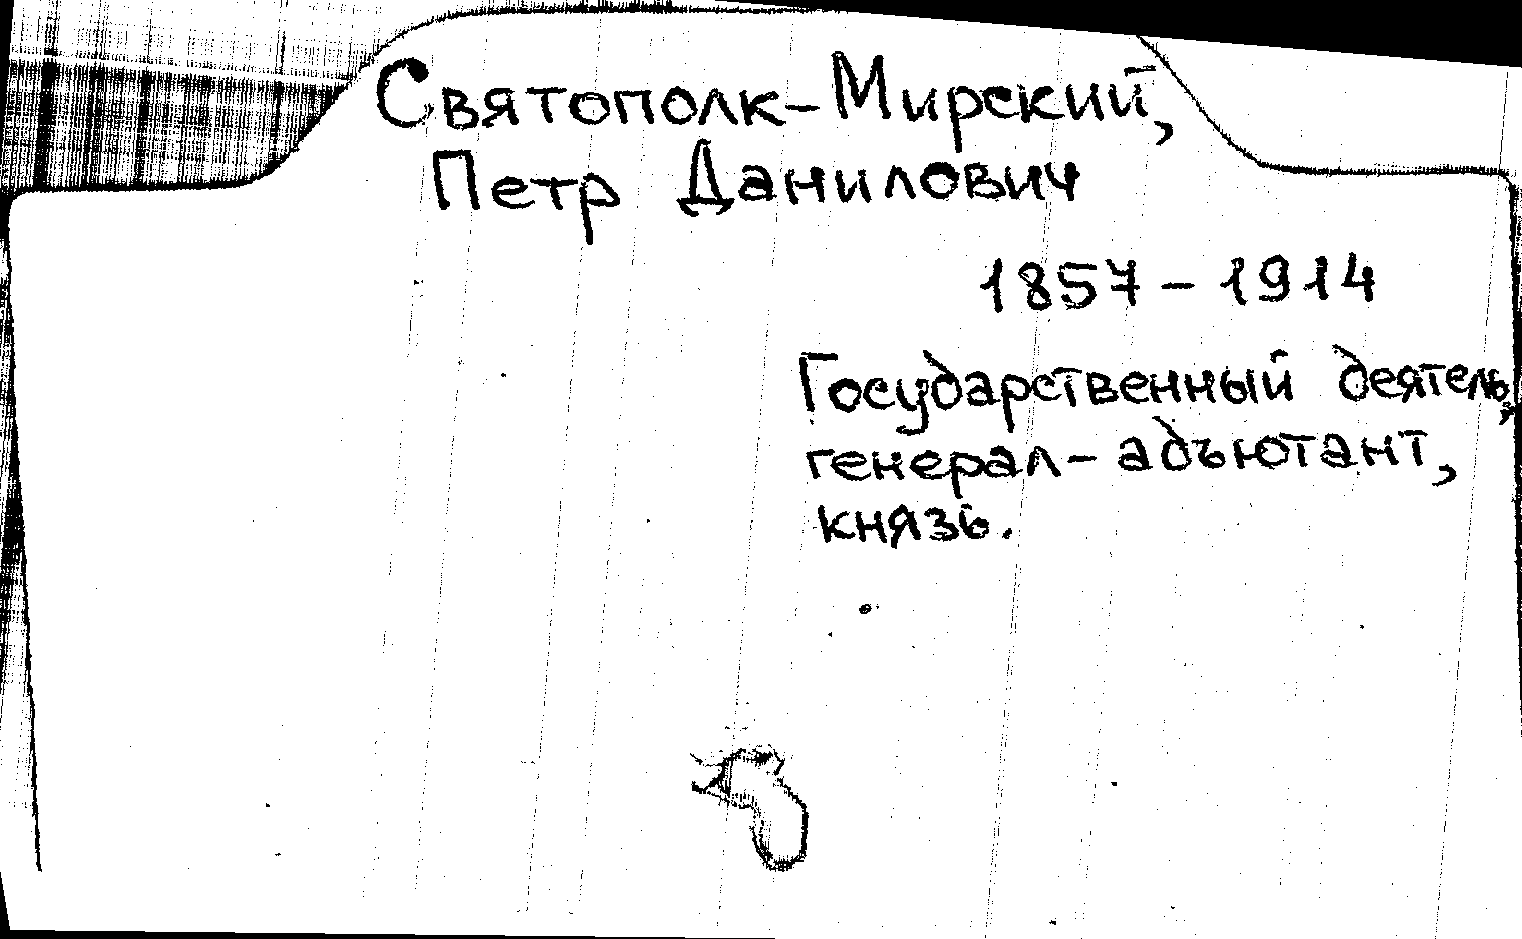 Святополк-Мирский,
Петр Данилович
1857-1914
Государственный деятель,
генерал-адъютант,
князь.